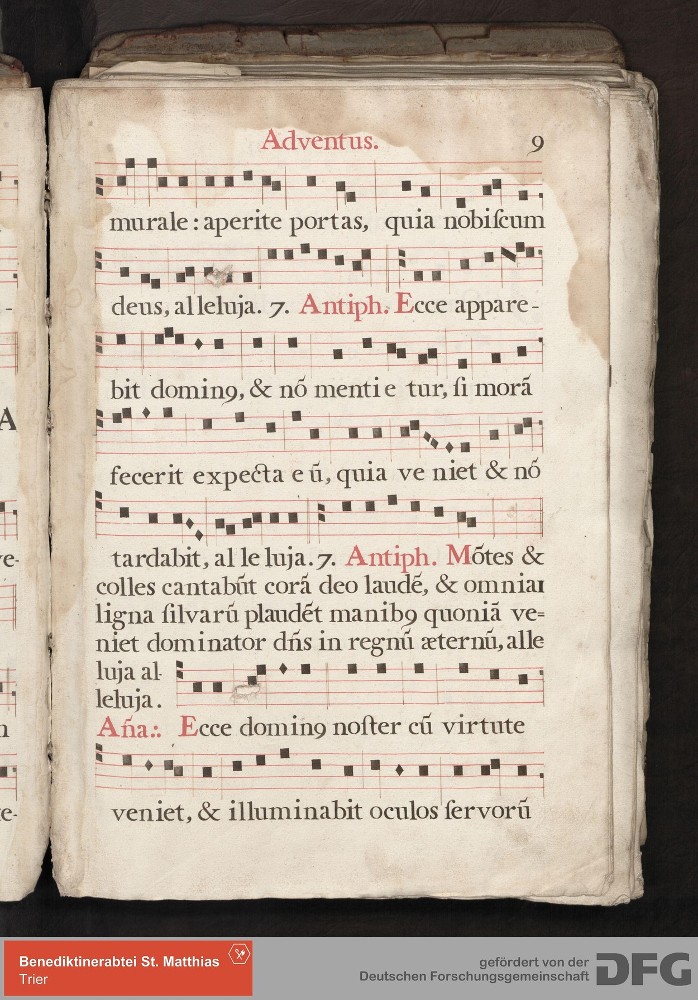 Adventus. 9
murale: aperite portas, quia nobiſcum
deus, alleluja. 7. Antiph. Ecce appare-
bit dominꝯ, & nõ mentie tur, ſi morã
fecerit expecta eũ, quia ve niet & nõ
tardabit, al le luja. 7. Antiph. Mõtes &
colles cantabũt corã deo laudẽ, & omnia
ligna ſilvarũ plaudẽt manibꝯ quoniã ve=
niet dominator dñs in regnũ æternũ, alle
luja al-
leluja.
Aña:. Ecce dominꝯ noſter cũ virtute
veniet, & illuminabit oculos ſervorũ
A
ve-
Benediktinerabtei St. Matthias
Trier
gefördert von der
Deutschen Forschungsgemeinschaft
DFG